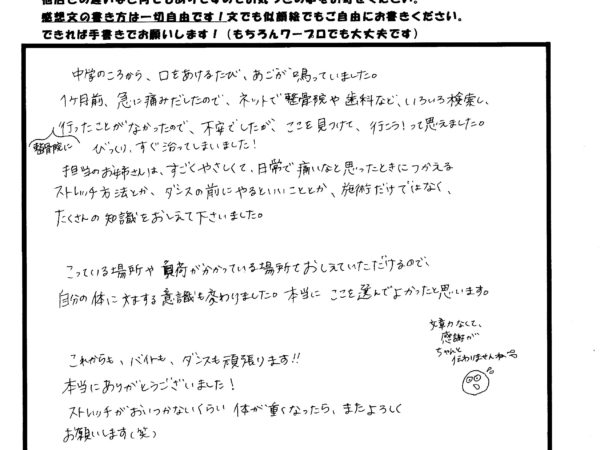 感想文の書き方は一切自由です!文でも似顔絵でもご自由にお書きください。
できれば手書きでお願いします!(もちろんワープロでも大丈夫です)
中学のころから、口をあけるたび、あごが鳴っていました。
1ヶ月前、急に痛みだしたので、ネットで整骨院や歯科など、いろいろ検索し、
行ったことがなかったので、不安でしたが、ここを見つけて、行こう!って思えました。
整骨院に
びっくり、すぐ治ってしまいました!
担当のお姉さんは、すごくやさしくて、日常で痛いなと思ったときにつかえる
ストレッチ方法とか、ダンスの前にやるといいこととか、施術だけではなく、
たくさんの知識をおしえて下さいました。
こっている場所や負荷がかかっている場所でおしえていただけるので、
自分の体に対する意識も変わりました。本当にここを選んでよかったと思います。
文章力なくて、
感謝が
ちゃんと
伝わりませんね
これからも、バイトも、ダンスも頑張ります!!
本当にありがとうございました!
ストレッチがおいつかないくらい体が重くなったら、またよろしく
お願いします(笑)